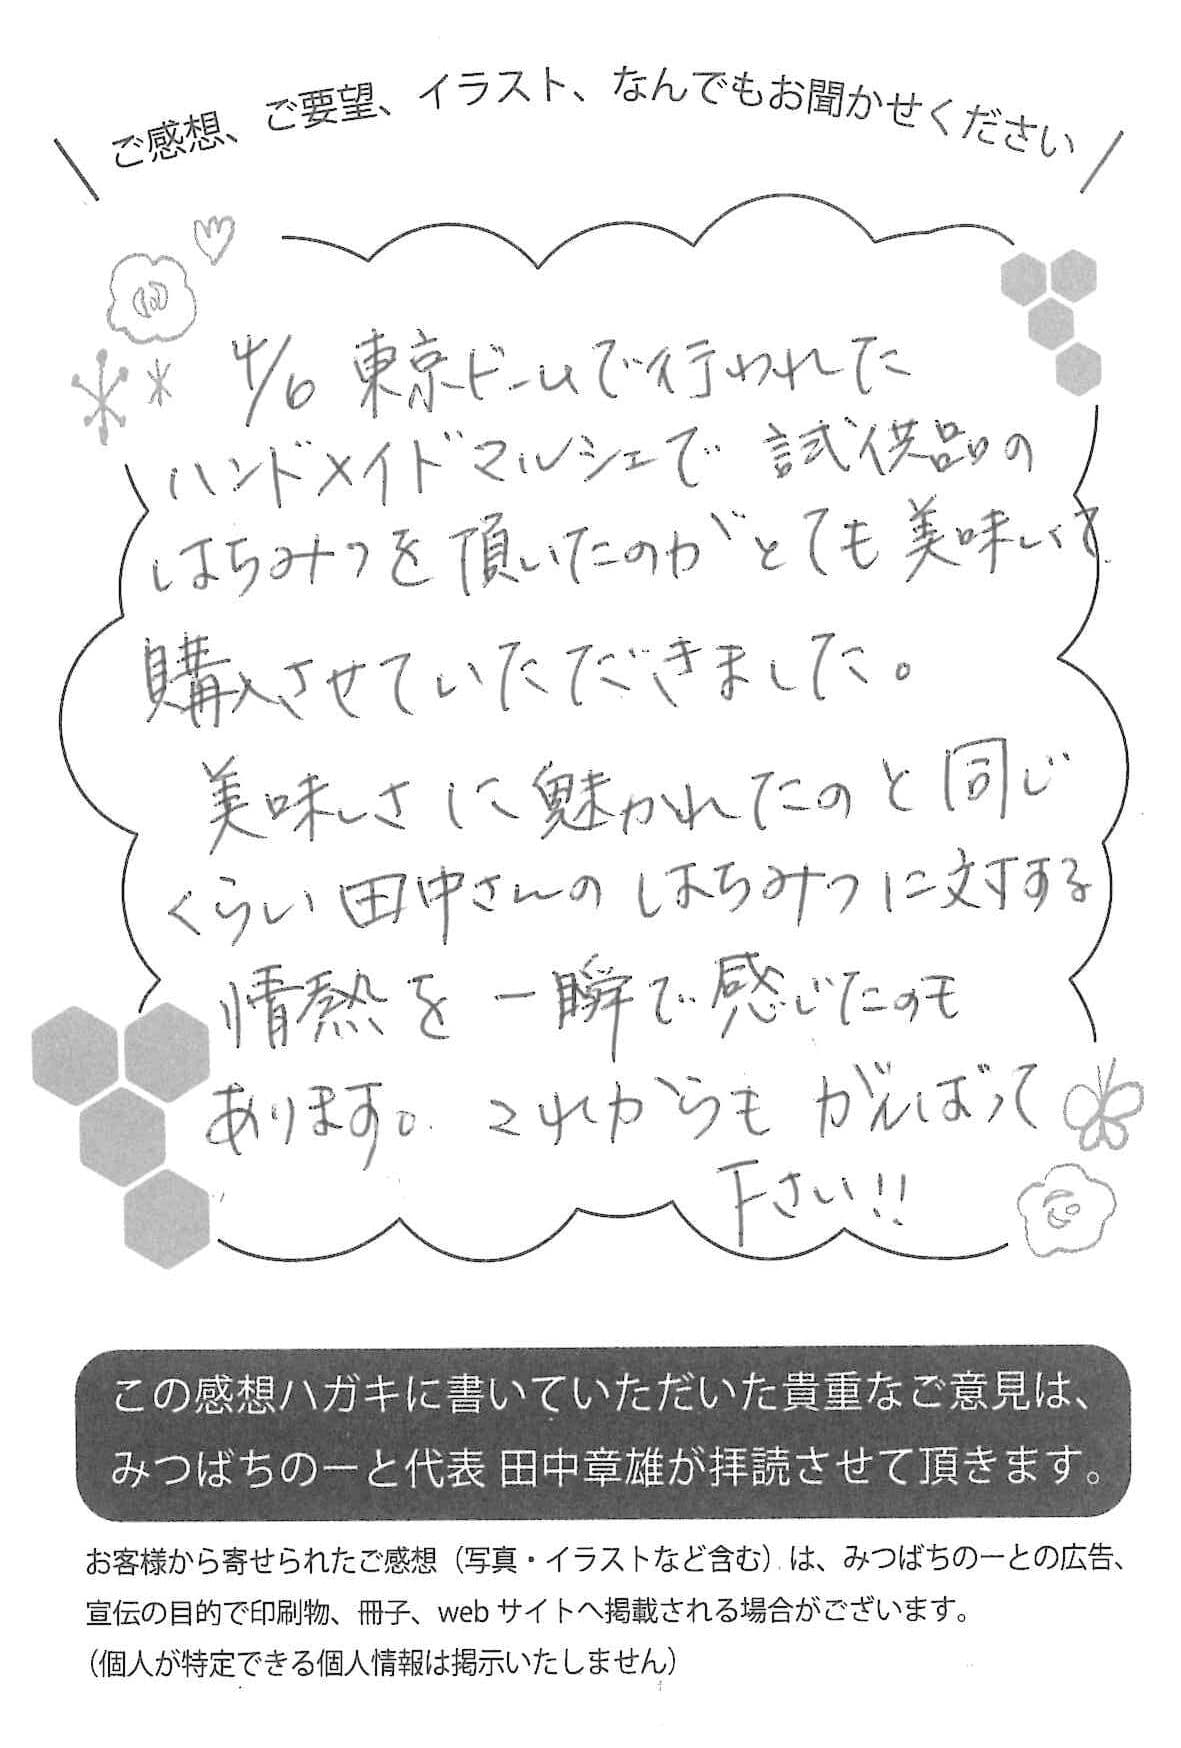 ご感想、ご要望、イラスト、なんでもお聞かせください
4/6 東京ドームで行われた
ハンドメイドマルシェで 試供品の
はちみつを頂いたのがとても美味しくて
購入させていただきました。
美味しさに魅かれたのと同じ
くらい田中さんのはちみつに対する
情熱を一瞬で感じたのも
あります。これからもがんばって
下さい!!
この感想ハガキに書いていただいた貴重なご意見は、
みつばちのーと代表 田中章雄が拝読させて頂きます。
お客様から寄せられたご感想（写真・イラストなど含む）は、みつばちのーとの広告、
宣伝の目的で印刷物、冊子、web サイトへ掲載される場合がございます。
（個人が特定できる個人情報は掲示いたしません）